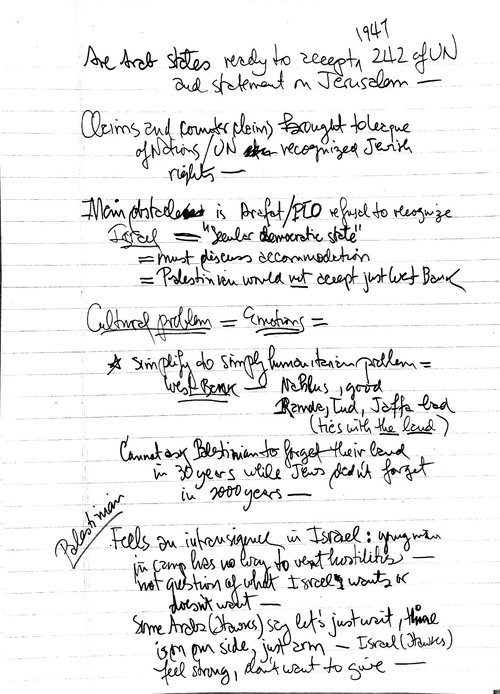 1947
Are Arab states ready to accept 242 of UN
and statement on Jerusalem —
Claims and counter claims brought to league
of Nations/UN recognized Jewish
rights —
Main obstacle is Arafat/PLO refusal to recognize
Israel = "secular democratic state"
= must discuss accommodation
= Palestinian would not accept just West Bank
Cultural problem = Emotions =
simplify to simply humanitarian problem =
West Bank — Nablus, good
Lud, Jaffa bad
(ties with the land)
Cannot ask Palestinian to forget their land
in 30 years while Jews didn't forget
in 2000 years —
Palestinian
Feels an intransigence in Israel: young man
in camp has no way to vent hostilities —
not question of what Israel wants or
doesn't want —
Some Arabs (Hawks) say let's just wait, time
is on our side, just arm — Israel (Hawks)
feel strong, don't want to give —